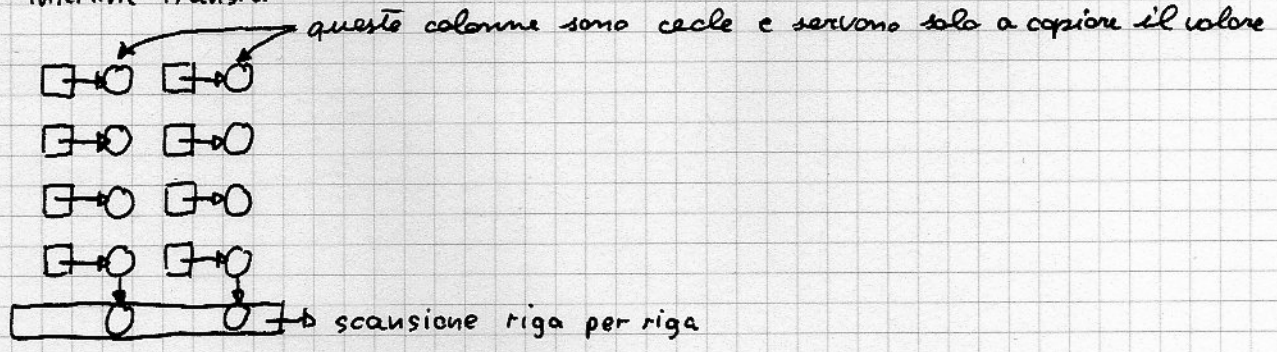 queste colonne sono ceche e servono solo a copiare il valore
scansione riga per riga